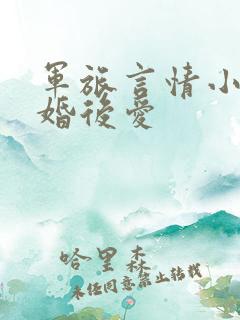 軍旅言情小
婚後愛
哈里森
未经同意禁止转载